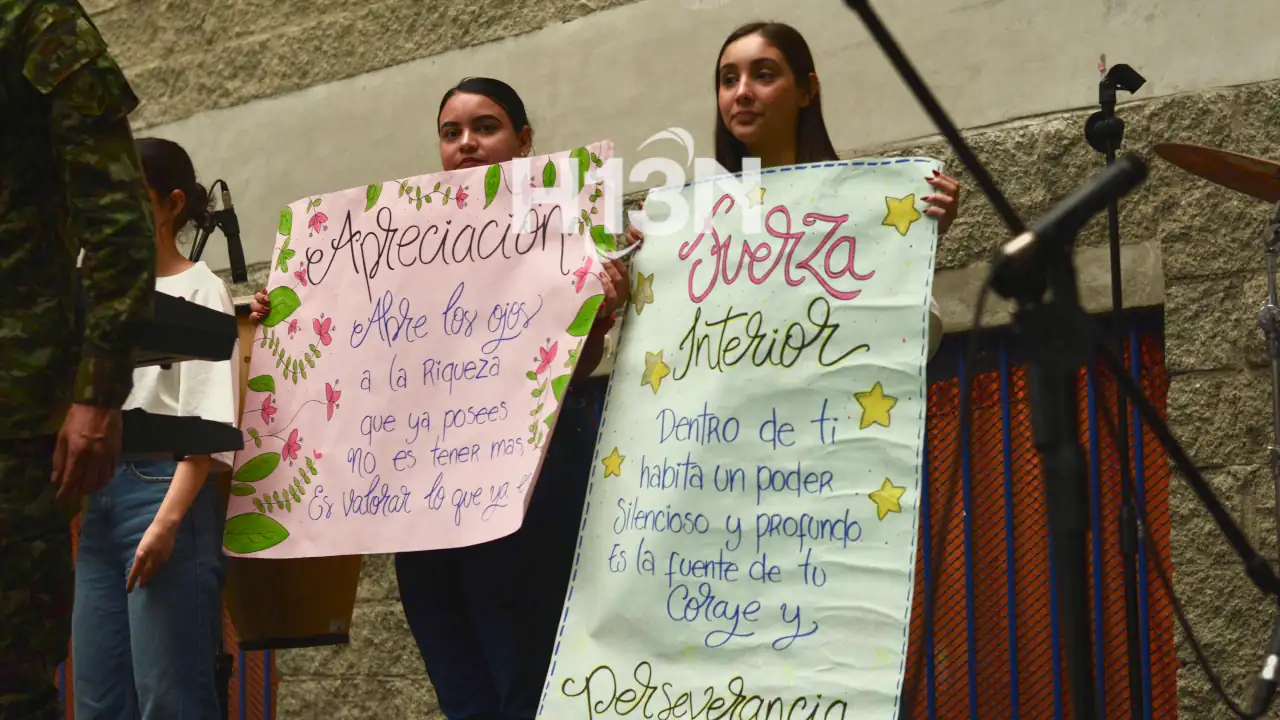 H13N
Apreciación
Abre los ojos
a la Riqueza
que ya posees
No es tener mas,
Es valorar lo que ya e
Fuerza
Interior
Dentro de ti
habita un poder
Silencioso y profundo
Es la fuente de tu
Coraje y
Perseverancia